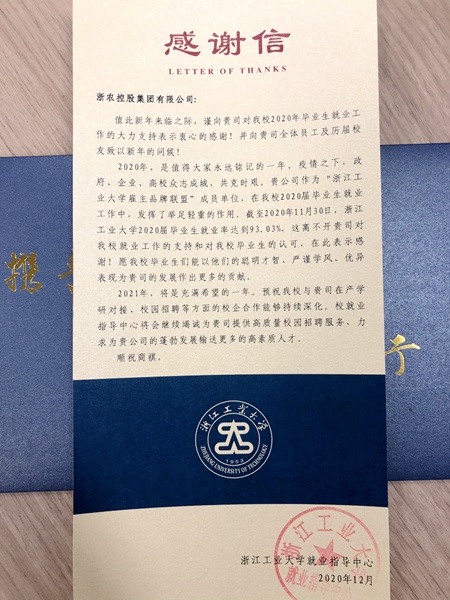 感谢信
LETTER OF THANKS
浙农控股集团有限公司:
值此新年来临之际,谨向贵司对我校2020年毕业生就业工
作的大力支持表示衷心的感谢!并向贵司全体员工及历届校
友致以新年的问候!
2020年,是值得大家永远铭记的一年。疫情之下,政
府、企业、高校众志成城,共克时艰。贵公司作为“浙江工
业大学雇主品牌联盟”成员单位,在我校2020届毕业生就业
工作中,发挥了举足轻重的作用。截至2020年11月30日,浙江
工业大学2020届毕业生就业率达到93.03%。这离不开贵司对
我校就业工作的支持和对我校毕业生的认可,在此表示感
谢!愿我校毕业生们能以他们的聪明才智、严谨学风、优异
表现为贵司的发展作出更多的贡献。
2021年,将是充满希望的一年。预祝我校与贵司在产学
研对接、校园招聘等方面的校企合作能够持续深化。校就业
指导中心将会继续竭诚为贵司提供高质量校园招聘服务,力
求为贵公司的蓬勃发展输送更多的高素质人才。
顺祝商祺。
浙江工业大学
1953
ZHEJIANG UNIVERSITY OF TECHNOLOGY
浙江工业大
就业指
浙江工业大学就业指导中心
2020年12月